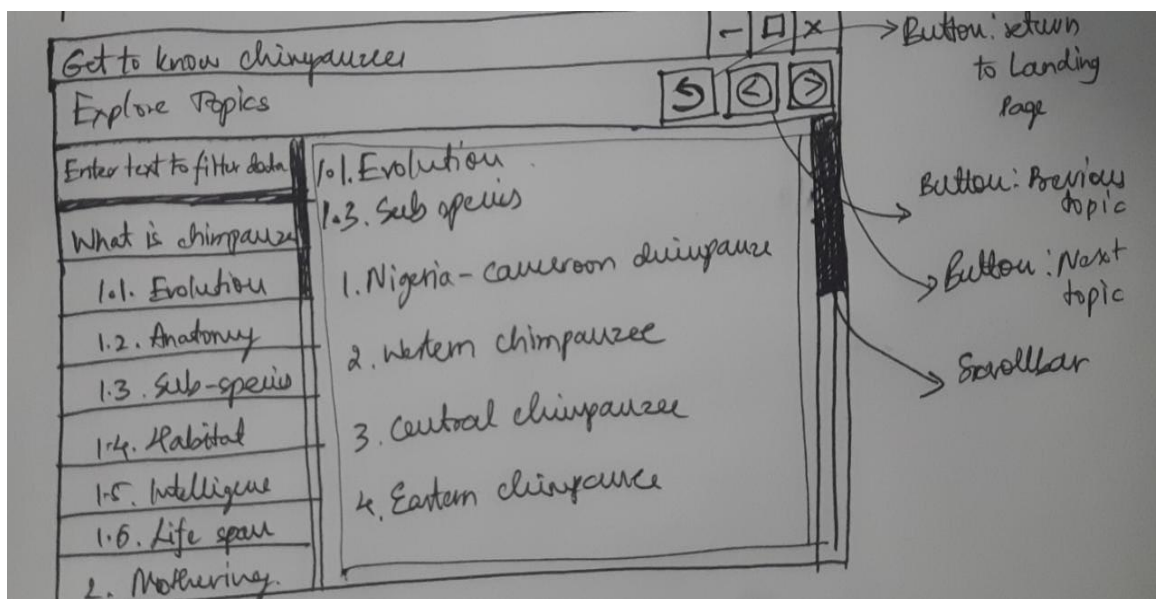 Get to know chimpanzees
Explore Topics
Button: return
to Landing
Page
Enter text to filter data
What is chimpanzee
1.1. Evolution
1.2. Anatomy
1.3. Sub-species
1.4. Habitat
1.5. Intelligence
1.6. Life span
2. Mothering.
1.1. Evolution
1.3. Sub species
1. Nigeria-Cameroon chimpanzee
2. Western chimpanzee
3. Central chimpanzee
4. Eastern chimpanzee
Button: Previous
topic
Button: Next
topic
Scrollbar